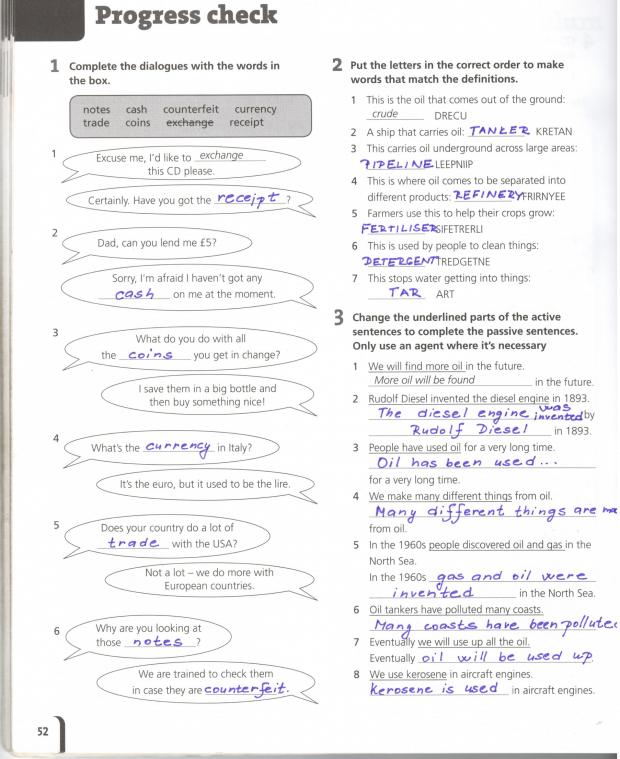 Progress check
1 Complete the dialogues with the words in
the box.
notes cash counterfeit currency
trade coins exchange receipt
1
Excuse me, I'd like to exchange
this CD please.
Certainly. Have you got the receipt ?
2
Dad, can you lend me £5?
Sorry, I'm afraid I haven't got any
cash on me at the moment.
3
What do you do with all
the coins you get in change?
I save them in a big bottle and
then buy something nice!
4
What's the currency in Italy?
It's the euro, but it used to be the lire.
5
Does your country do a lot of
trade with the USA?
Not a lot – we do more with
European countries.
6
Why are you looking at
those notes ?
We are trained to check them
in case they are counterfeit.
52
2 Put the letters in the correct order to make
words that match the definitions.
1 This is the oil that comes out of the ground:
crude DRECU
2 A ship that carries oil: TANKER KRETAN
3 This carries oil underground across large areas:
PIPELINE LEEPNIIP
4 This is where oil comes to be separated into
different products: REFINERY FRIRNYEE
5 Farmers use this to help their crops grow:
FERTILISER SIFETRERLI
6 This is used by people to clean things:
DETERGENT TREDGETNE
7 This stops water getting into things:
TAR ART
3 Change the underlined parts of the active
sentences to complete the passive sentences.
Only use an agent where it's necessary
1 We will find more oil in the future.
More oil will be found in the future.
2 Rudolf Diesel invented the diesel engine in 1893.
The diesel engine was invented by
Rudolf Diesel in 1893.
3 People have used oil for a very long time.
Oil has been used...
for a very long time.
4 We make many different things from oil.
Many different things are
from oil.
5 In the 1960s people discovered oil and gas in the
North Sea.
In the 1960s gas and oil were
invented in the North Sea.
6 Oil tankers have polluted many coasts.
Many coasts have been polluted
7 Eventually we will use up all the oil.
Eventually oil will be used up.
8 We use kerosene in aircraft engines.
Kerosene is used in aircraft engines.